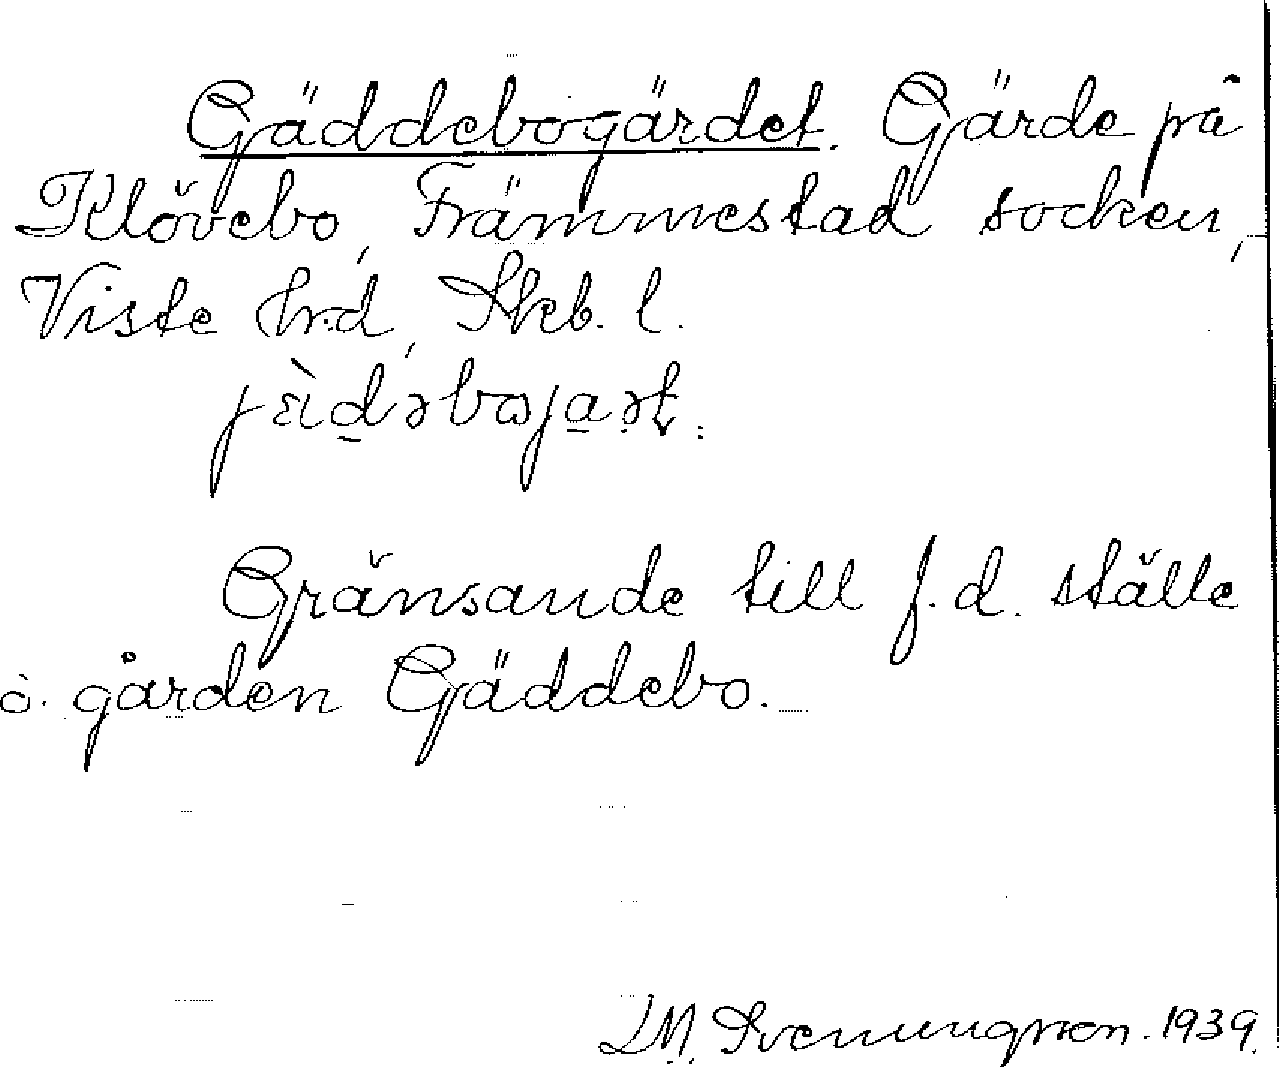 Gäddebogärdet. Gärde på
Klövebo, Främmestad socken,
Viste hrd, Skb. l.
jɛ̀dəbojaət.
Gränsande till f.d. ställe
o. gården Gäddebo.
D.M. Svenungsson. 1939.